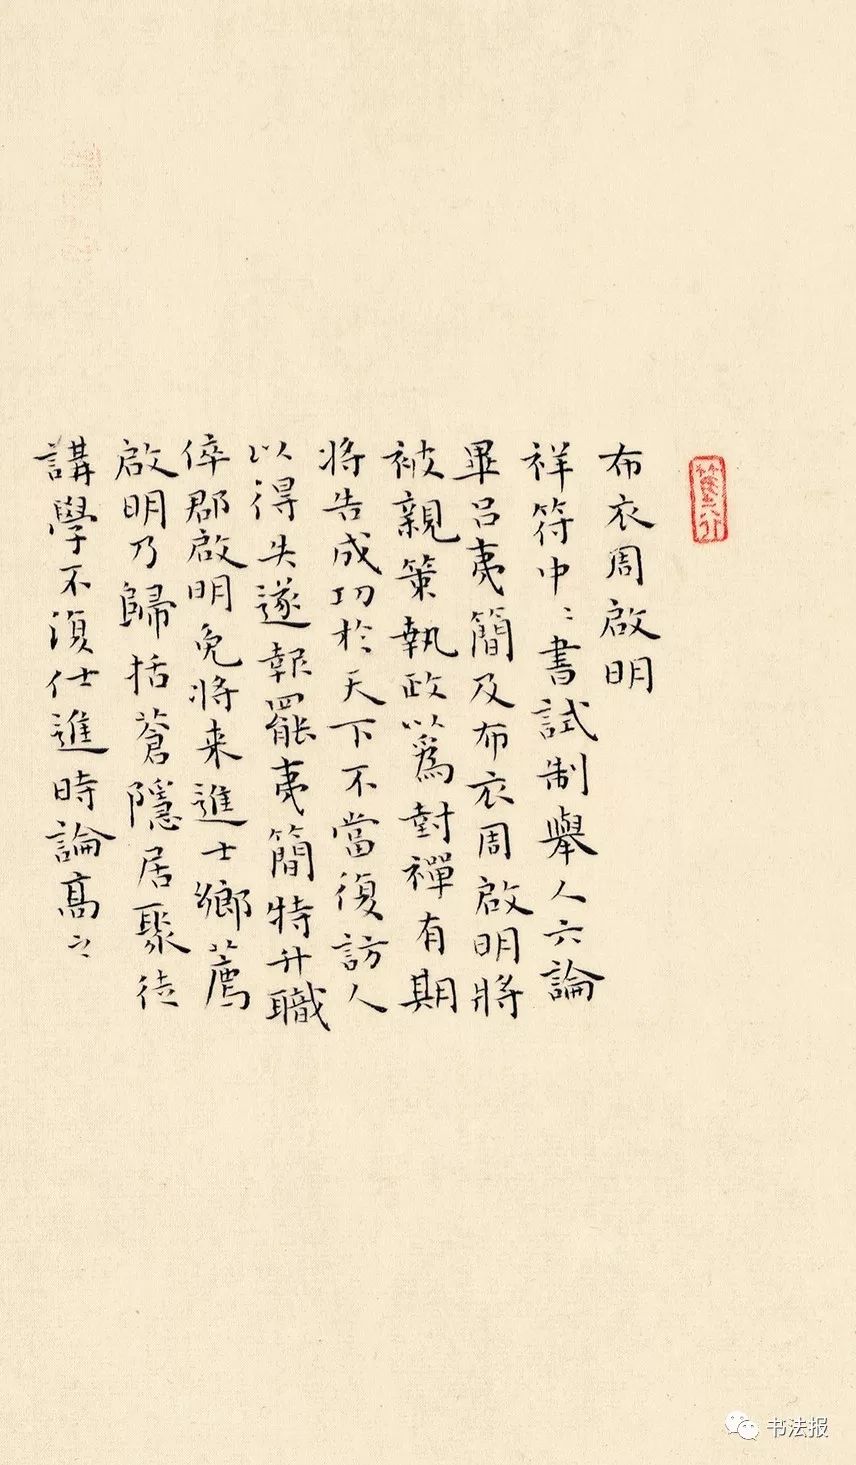 布衣周啟明
祥符中〻書試制舉人六論
畢呂夷簡及布衣周啟明將
被親策執政以爲封禪有期
将告成功於天下不當復訪人
以得失遂報罷夷簡特升職
倅郡啟明免将来進士鄉薦
啟明乃歸括蒼隱居聚徒
講學不復仕進時論髙之
书法报